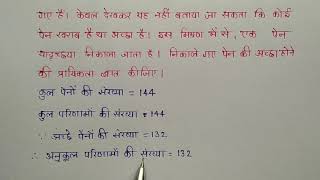 गए हैं। केवल देखकर यह नहीं बताया जा सकता कि कोई
पेन खराब है या अच्छा है। इस मिश्रण में से, एक पेन
यादृच्छया निकाला जाता है। निकाले गए पेन की अच्छा होने
की प्रायिकता ज्ञात कीजिए।
कुल पेनों की संख्या = 144
कुल परिणामों की संख्या = 144
∵ अच्छे पेनों की संख्या = 132
∴ अनुकूल परिणामों की संख्या = 132